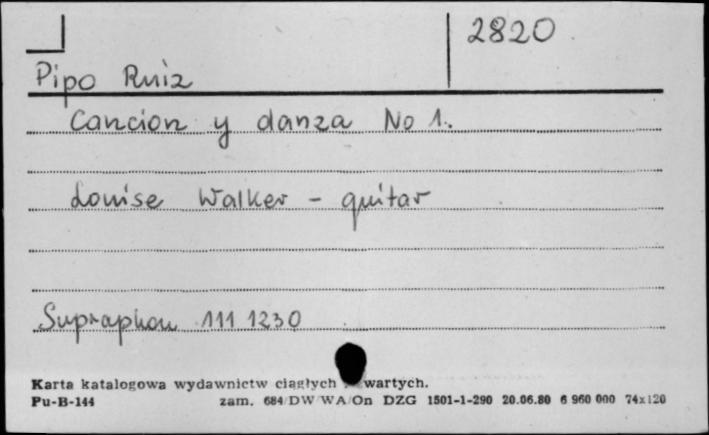 2820
Pipo Ruiz
Cancion y danza No 1.
Louise Walker - guitar
Supraphon 111 1230
Karta katalogowa wydawnictw ciągłych wartych.
Pu-B-144 zam. 684/DW/WA/On DZG 1501-1-290 20.06.80 6 960 000 74x120